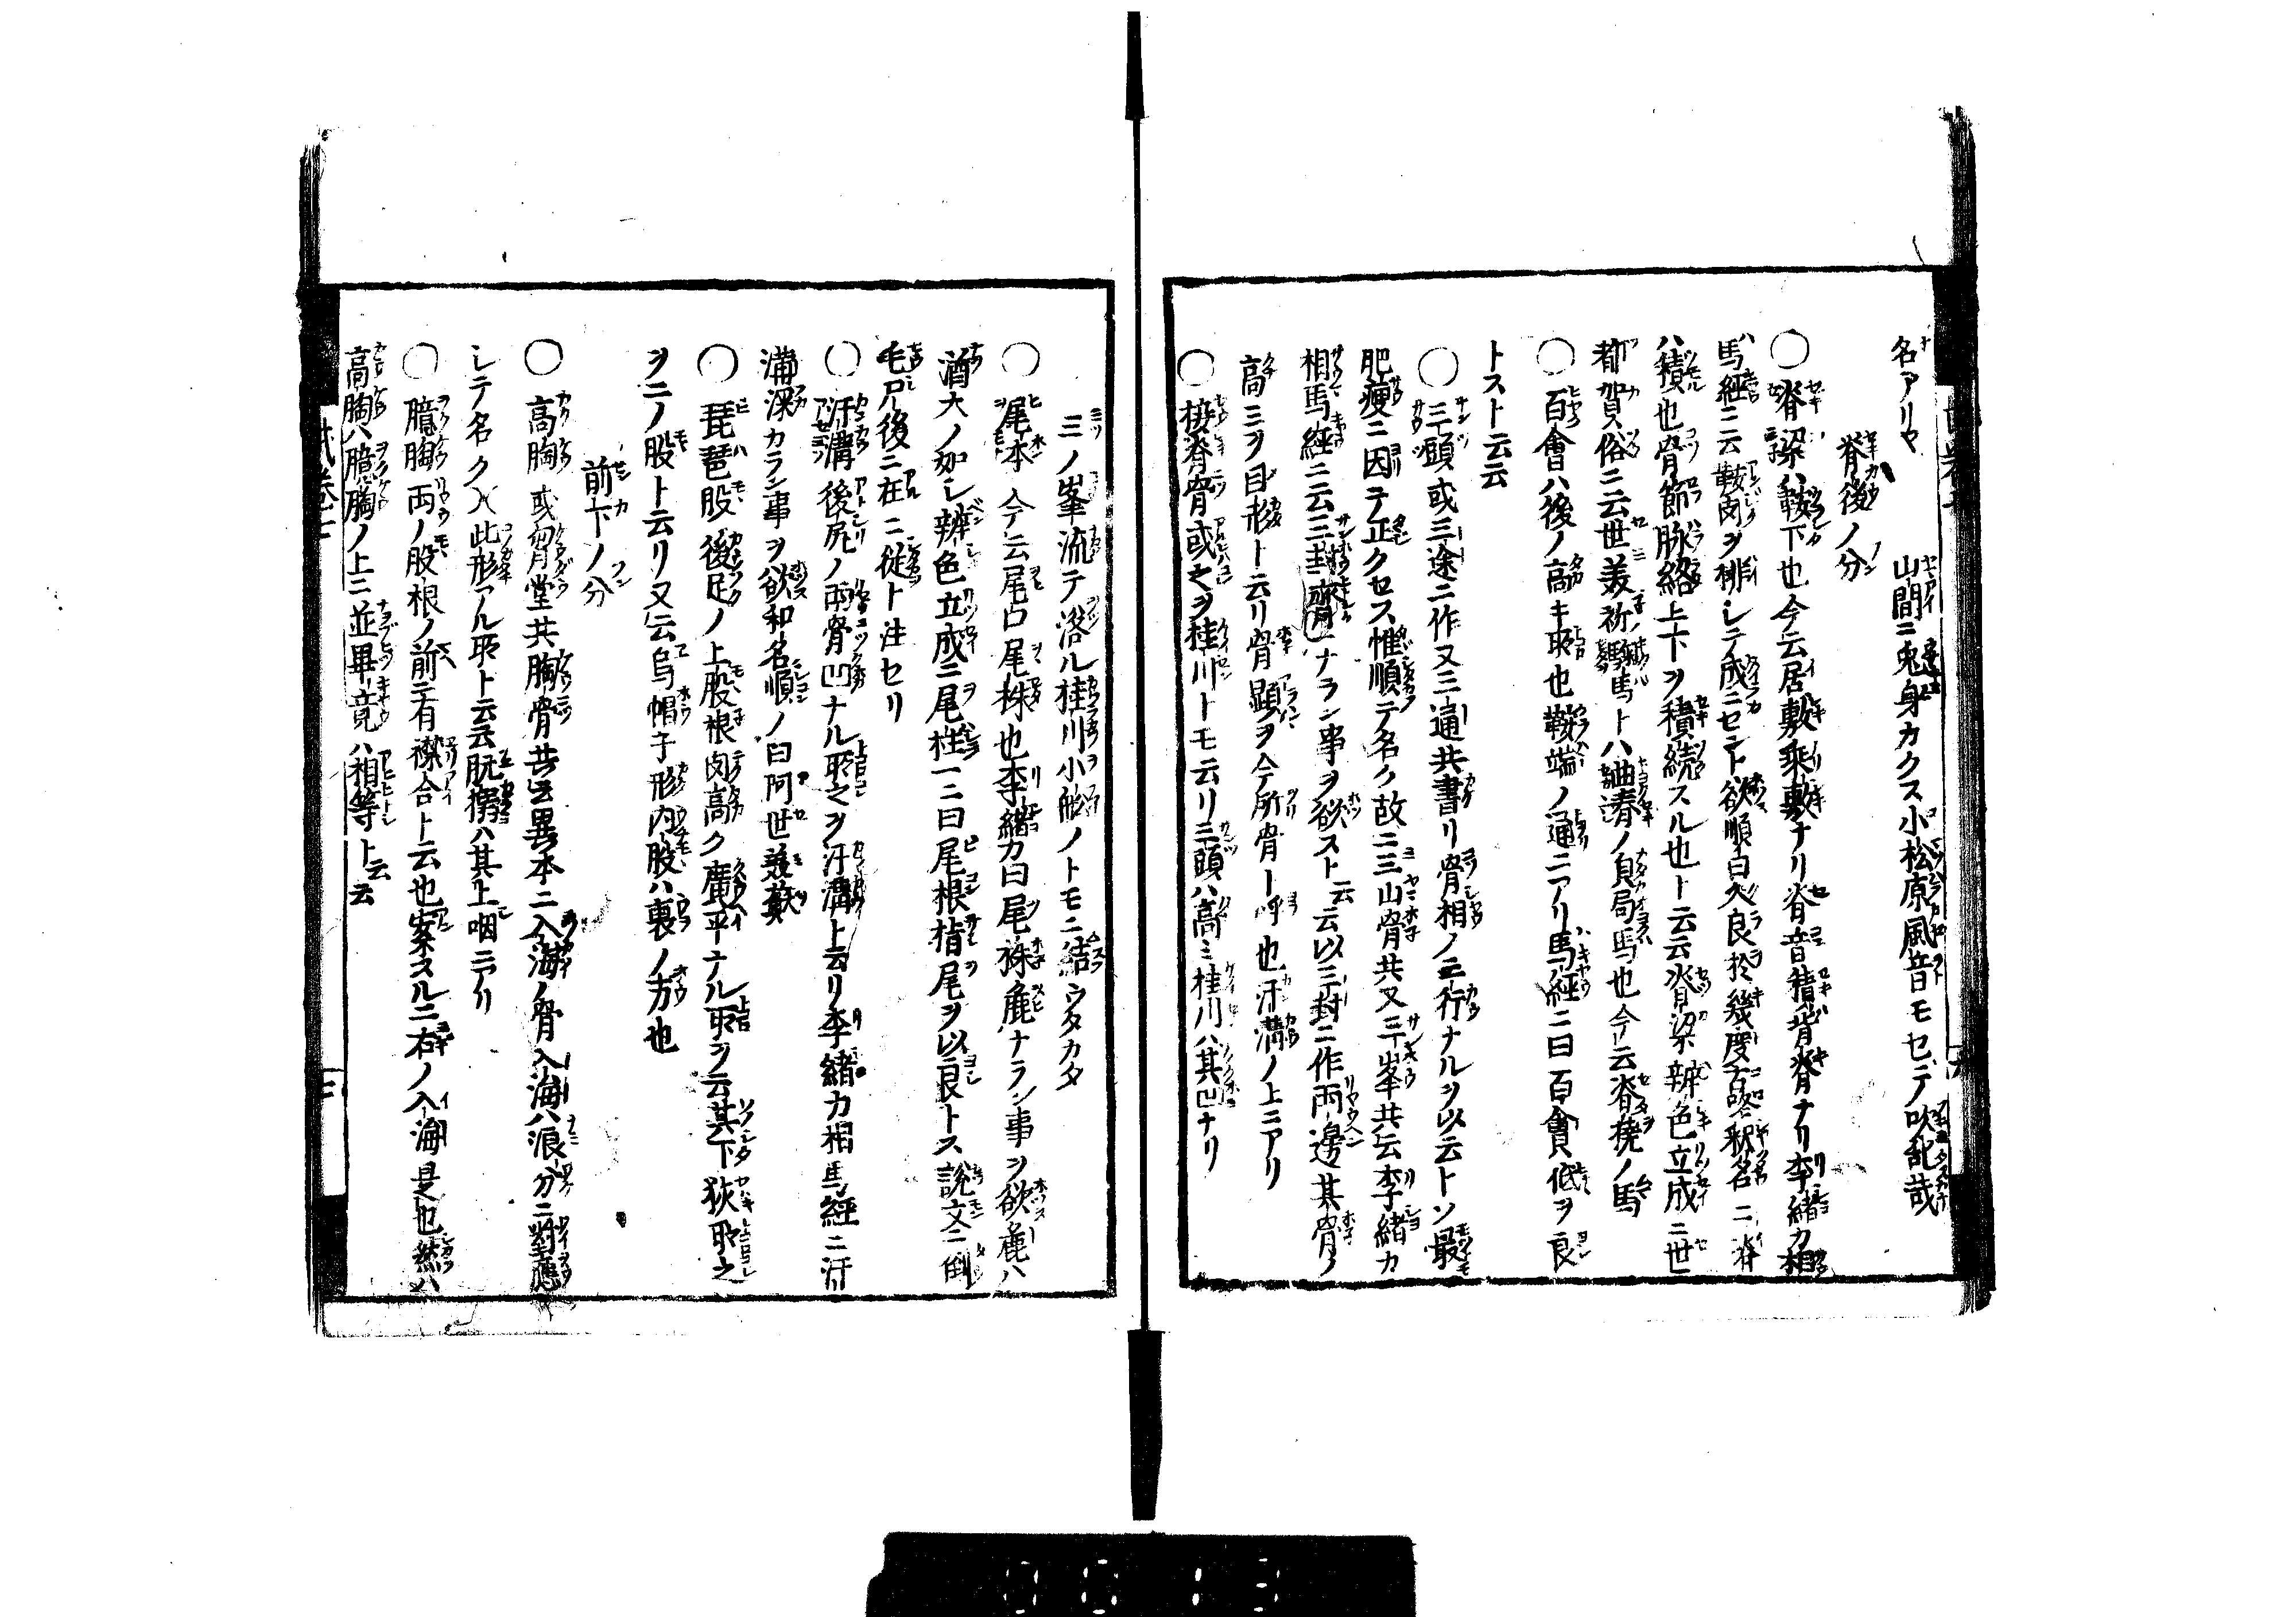 名アリヤ　山間ニ兎身カクス小松原風音モセデ吹乱哉
脊後ノ分
○脊梁ハ鞍下也今云居敷乗敷ナリ脊音積背脊ナリ李緒カ相
馬経ニ云鞍肉ヲ排シテ成ニセント欲順曰久良於幾度古呂釈名ニ脊
ハ積也骨節脉絡上下ヲ積続スル也ト云云脊梁辨色立成ニ世
都賀俗ニ云世美祢驛馬トハ詘脊ノ貟局馬也今云脊撓ノ馬
○百會ハ後ノ高キ所也鞍端ノ通ニアリ馬経ニ曰百會低ヲ良
トスト云云
○三頭或三途ニ作又三通共書リ骨相ノ三行ナルヲ以云トソ最
肥痩ニ因テ正クセス惟順テ名ク故ニ三山骨共又三峯共云李緒カ
相馬経ニ云三封齊ナラン事ヲ欲スト云云以三封ニ作両邊其骨ノ
高ミヲ目形ト云リ骨顕ヲ今所骨ト呼也汗溝ノ上ニアリ
○接脊骨或之ヲ桂川トモ云リ三頭ハ高ミ桂川ハ其凹ナリ
三ノ峯流テ洛ル桂川小舩ノトモニ結ウタカタ
○尾本今云尾占尾株也李緒カ曰尾株麁ナラン事ヲ欲麁ハ
酒大ノ如シ辨色立成ニ尾柱一ニ曰尾根指尾ヲ以良トス説文ニ倒
毛尸後ニ在ニ従ト注セリ
○汗溝後尻ノ両骨凹ナル所之ヲ汗溝ト云リ李緒カ相馬経ニ汗
溝深カラン事ヲ欲和名順ノ曰阿世美蔱
○琵琶股後足ノ上股根肉高ク廣平ナル所ヲ云其下狭所之
ヲニノ股ト云リ又云烏帽子形内股ハ裏ノ方也
前下ノ分
○高胸或胷堂共胸骨共云異本ニ入海ノ骨入海ハ浪分ニ對應
シテ名ク入此形アル所ト云云肮㨪ハ其上咽ニアリ
○臆胸両ノ股根ノ前ニ有襟合ト云也案スルニ右ノ入海是也然ハ
高胸ハ臆胸ノ上ニ並畢竟ハ相等ト云云